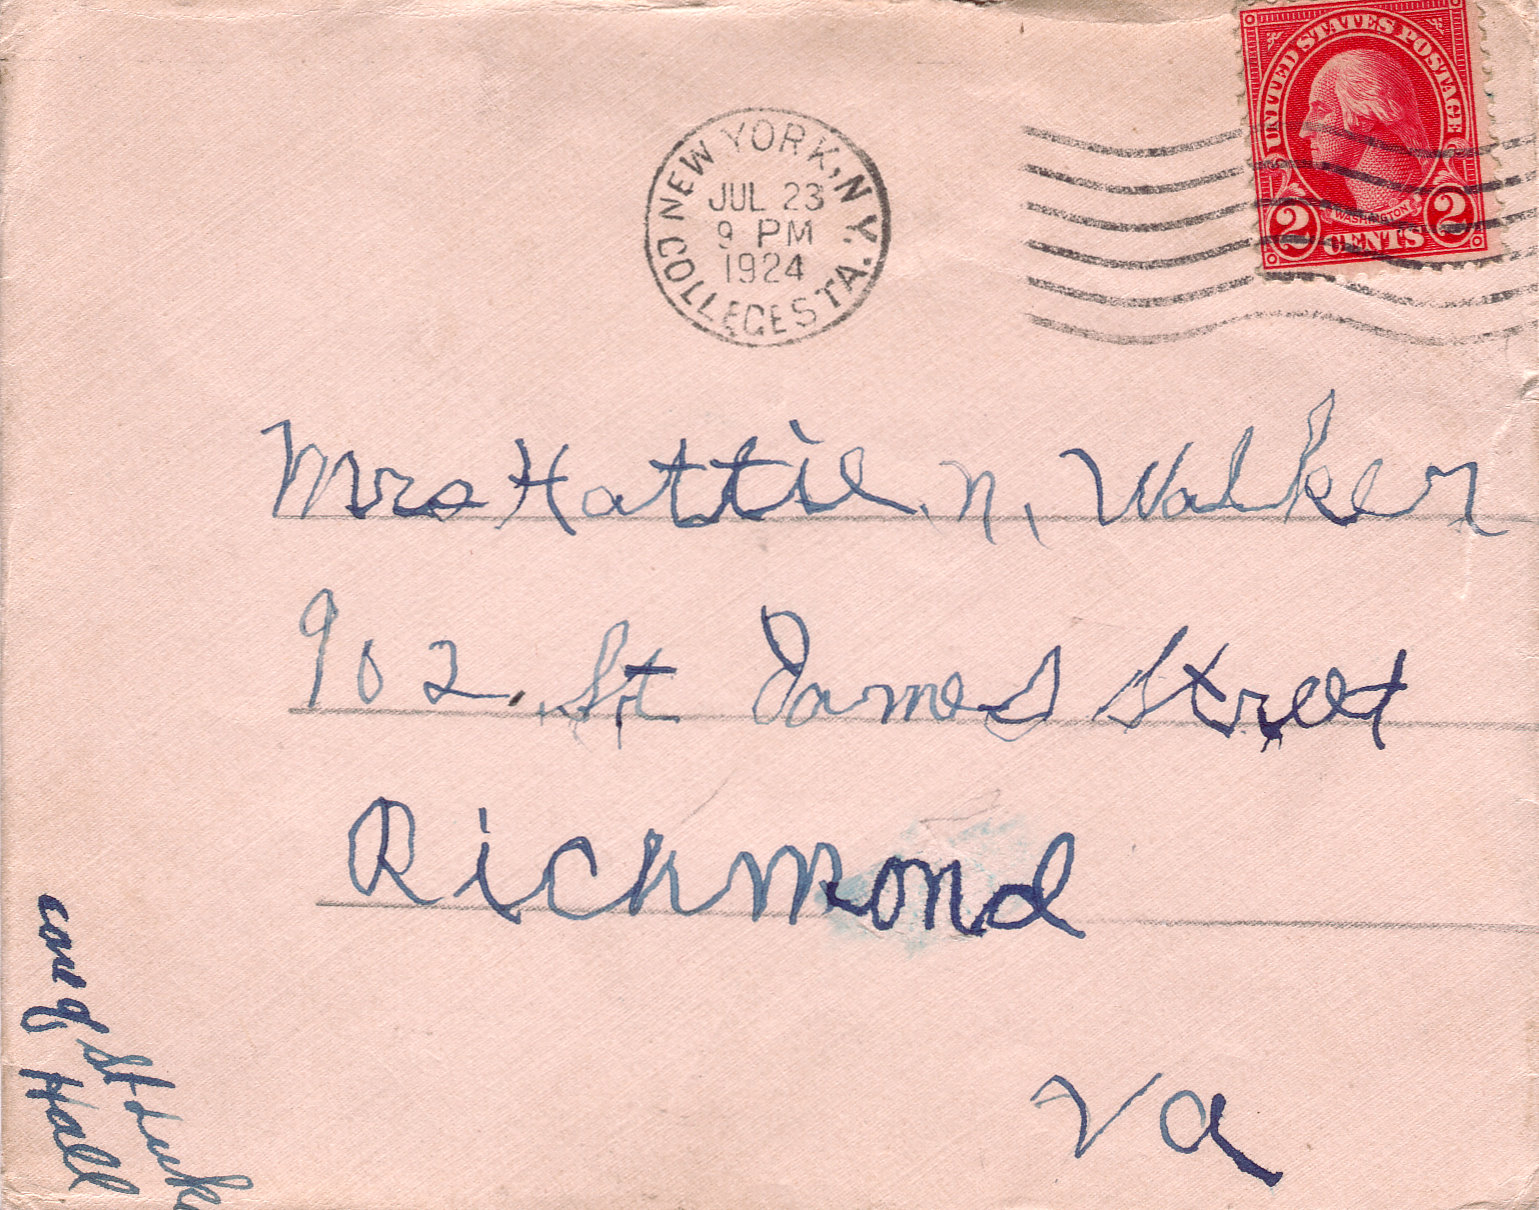 UNITED STATES POSTAGE
WASHINGTON
2 CENTS 2
NEW YORK, N.Y.
JUL 23
9 PM
1924
COLLEGE STA.
Mrs Hattie N. Walker
902. St James Street
Richmond
Va
care of St Luke
Hall